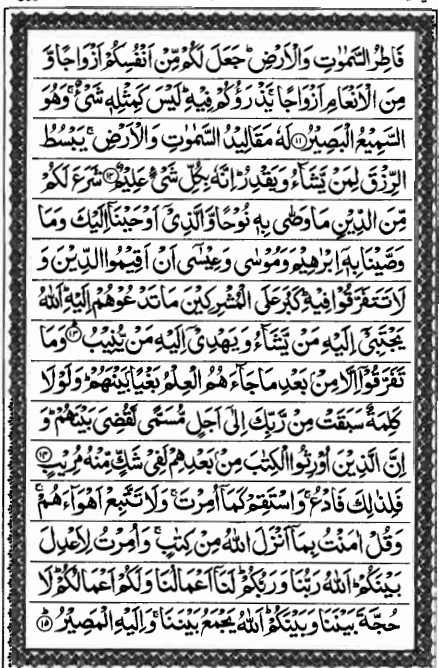 فَاطِرُ السَّمٰوٰتِ وَالْاَرْضِ ؕ جَعَلَ لَكُمْ مِّنْ اَنْفُسِكُمْ اَزْوَاجًا وَّ
مِنَ الْاَنْعَامِ اَزْوَاجًا ۚ يَذْرَؤُكُمْ فِيْهِ ؕ لَيْسَ كَمِثْلِهٖ شَىْءٌ ۚ وَهُوَ
السَّمِيْعُ الْبَصِيْرُ ﴿۱۱﴾ لَهٗ مَقَالِيْدُ السَّمٰوٰتِ وَالْاَرْضِ ۚ يَبْسُطُ
الرِّزْقَ لِمَنْ يَّشَآءُ وَيَقْدِرُ ؕ اِنَّهٗ بِكُلِّ شَىْءٍ عَلِيْمٌ ﴿۱۲﴾ شَرَعَ لَكُمْ
مِّنَ الدِّيْنِ مَا وَصّٰى بِهٖ نُوْحًا وَّالَّذِىْۤ اَوْحَيْنَاۤ اِلَيْكَ وَمَا
وَصَّيْنَا بِهٖۤ اِبْرٰهِيْمَ وَمُوْسٰى وَعِيْسٰۤى اَنْ اَقِيْمُوا الدِّيْنَ وَ
لَا تَتَفَرَّقُوْا فِيْهِ ؕ كَبُرَ عَلَى الْمُشْرِكِيْنَ مَا تَدْعُوْهُمْ اِلَيْهِ ؕ اَللّٰهُ
يَجْتَبِىْۤ اِلَيْهِ مَنْ يَّشَآءُ وَيَهْدِىْۤ اِلَيْهِ مَنْ يُّنِيْبُ ﴿۱۳﴾ وَمَا
تَفَرَّقُوْۤا اِلَّا مِنْۢ بَعْدِ مَا جَآءَهُمُ الْعِلْمُ بَغْيًۢا بَيْنَهُمْ ؕ وَلَوْلَا
كَلِمَةٌ سَبَقَتْ مِنْ رَّبِّكَ اِلٰٓى اَجَلٍ مُّسَمًّى لَّقُضِىَ بَيْنَهُمْ ؕ وَ
اِنَّ الَّذِيْنَ اُوْرِثُوا الْكِتٰبَ مِنْۢ بَعْدِهِمْ لَفِىْ شَكٍّ مِّنْهُ مُرِيْبٍ ﴿۱۴﴾
فَلِذٰلِكَ فَادْعُ ۚ وَاسْتَقِمْ كَمَاۤ اُمِرْتَ ۚ وَلَا تَتَّبِعْ اَهْوَآءَهُمْ ۚ
وَقُلْ اٰمَنْتُ بِمَاۤ اَنْزَلَ اللّٰهُ مِنْ كِتٰبٍ ۚ وَاُمِرْتُ لِاَعْدِلَ
بَيْنَكُمْ ؕ اَللّٰهُ رَبُّنَا وَرَبُّكُمْ ؕ لَنَاۤ اَعْمَالُنَا وَلَكُمْ اَعْمَالُكُمْ ؕ لَا
حُجَّةَ بَيْنَنَا وَبَيْنَكُمْ ؕ اَللّٰهُ يَجْمَعُ بَيْنَنَا ۚ وَاِلَيْهِ الْمَصِيْرُ ﴿۱۵﴾